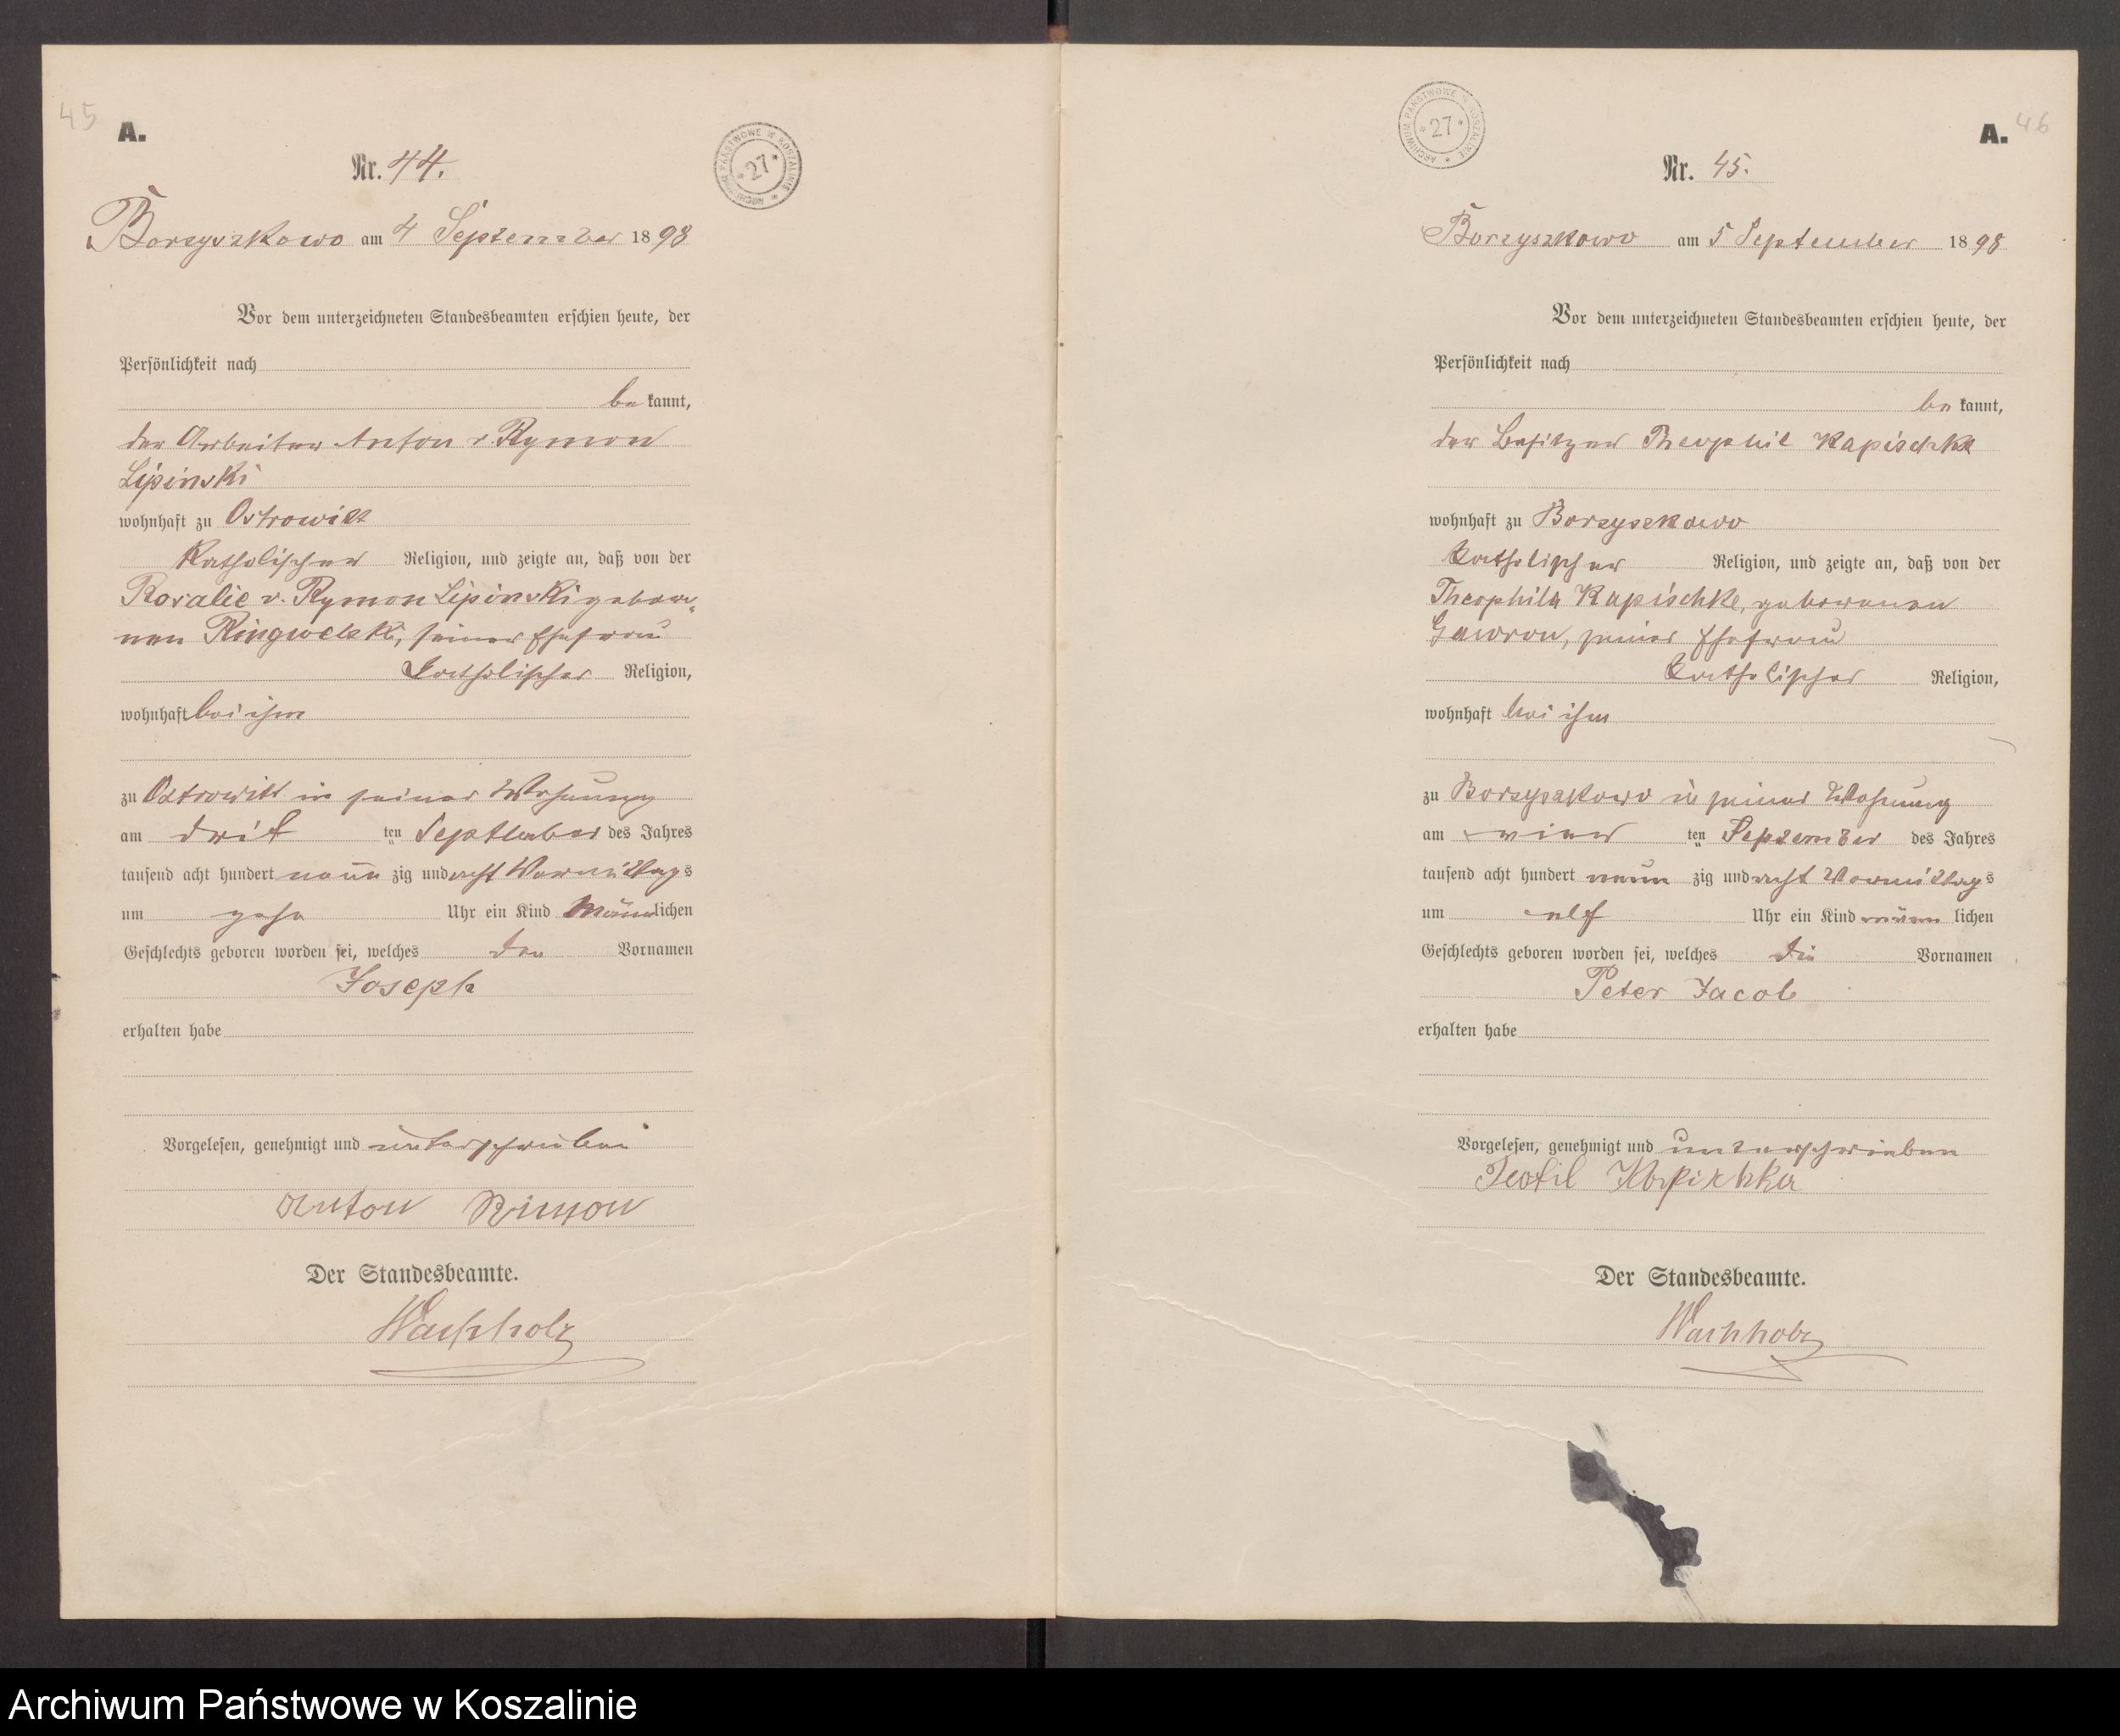 45
A.
Nr. 44.
ARCHIWUM PAŃSTWOWE W KOSZALINIE * 27 *
Borzyszkowo am 4 September 1898
Vor dem unterzeichneten Standesbeamten erschien heute, der
Persönlichkeit nach
be kannt,
der Arbeiter Anton v. Rymon
Lipinski
wohnhaft zu Ostrowitt
Katholischer Religion, und zeigte an, daß von der
Rosalie v. Rymon Lipinski gebore-
nen Ringwelski, seiner Ehefrau
katholischer Religion,
wohnhaft bei ihm
zu Ostrowitt in seiner Wohnung
am drit ten September des Jahres
tausend acht hundert neun zig und acht Vormittags
um zehn Uhr ein Kind männlichen
Geschlechts geboren worden sei, welches den Vornamen
Joseph
erhalten habe
Vorgelesen, genehmigt und unterschrieben
Anton Rimon
Der Standesbeamte.
Wachholz
46
A.
ARCHIWUM PAŃSTWOWE W KOSZALINIE * 27 *
Nr. 45.
Borzyszkowo am 5 September 1898
Vor dem unterzeichneten Standesbeamten erschien heute, der
Persönlichkeit nach
be kannt,
der Besitzer Theophil Kapischke
wohnhaft zu Borzyszkowo
katholischer Religion, und zeigte an, daß von der
Theophila Kapischke, geborenen
Gawron, seiner Ehefrau
katholischer Religion,
wohnhaft bei ihm
zu Borzyszkowo in seiner Wohnung
am vier ten September des Jahres
tausend acht hundert neun zig und acht Vormittags
um elf Uhr ein Kind männ lichen
Geschlechts geboren worden sei, welches die Vornamen
Peter Jacob
erhalten habe
Vorgelesen, genehmigt und unterschrieben
Teofil Kapischka
Der Standesbeamte.
Wachholz
Archiwum Państwowe w Koszalinie